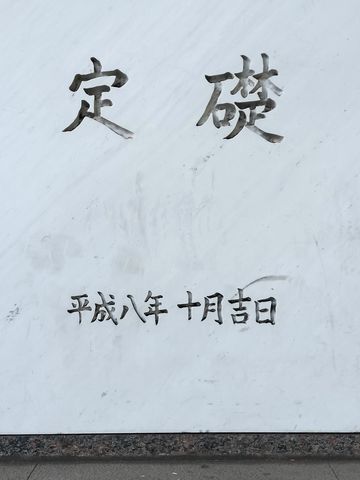 定礎
平成八年十月吉日